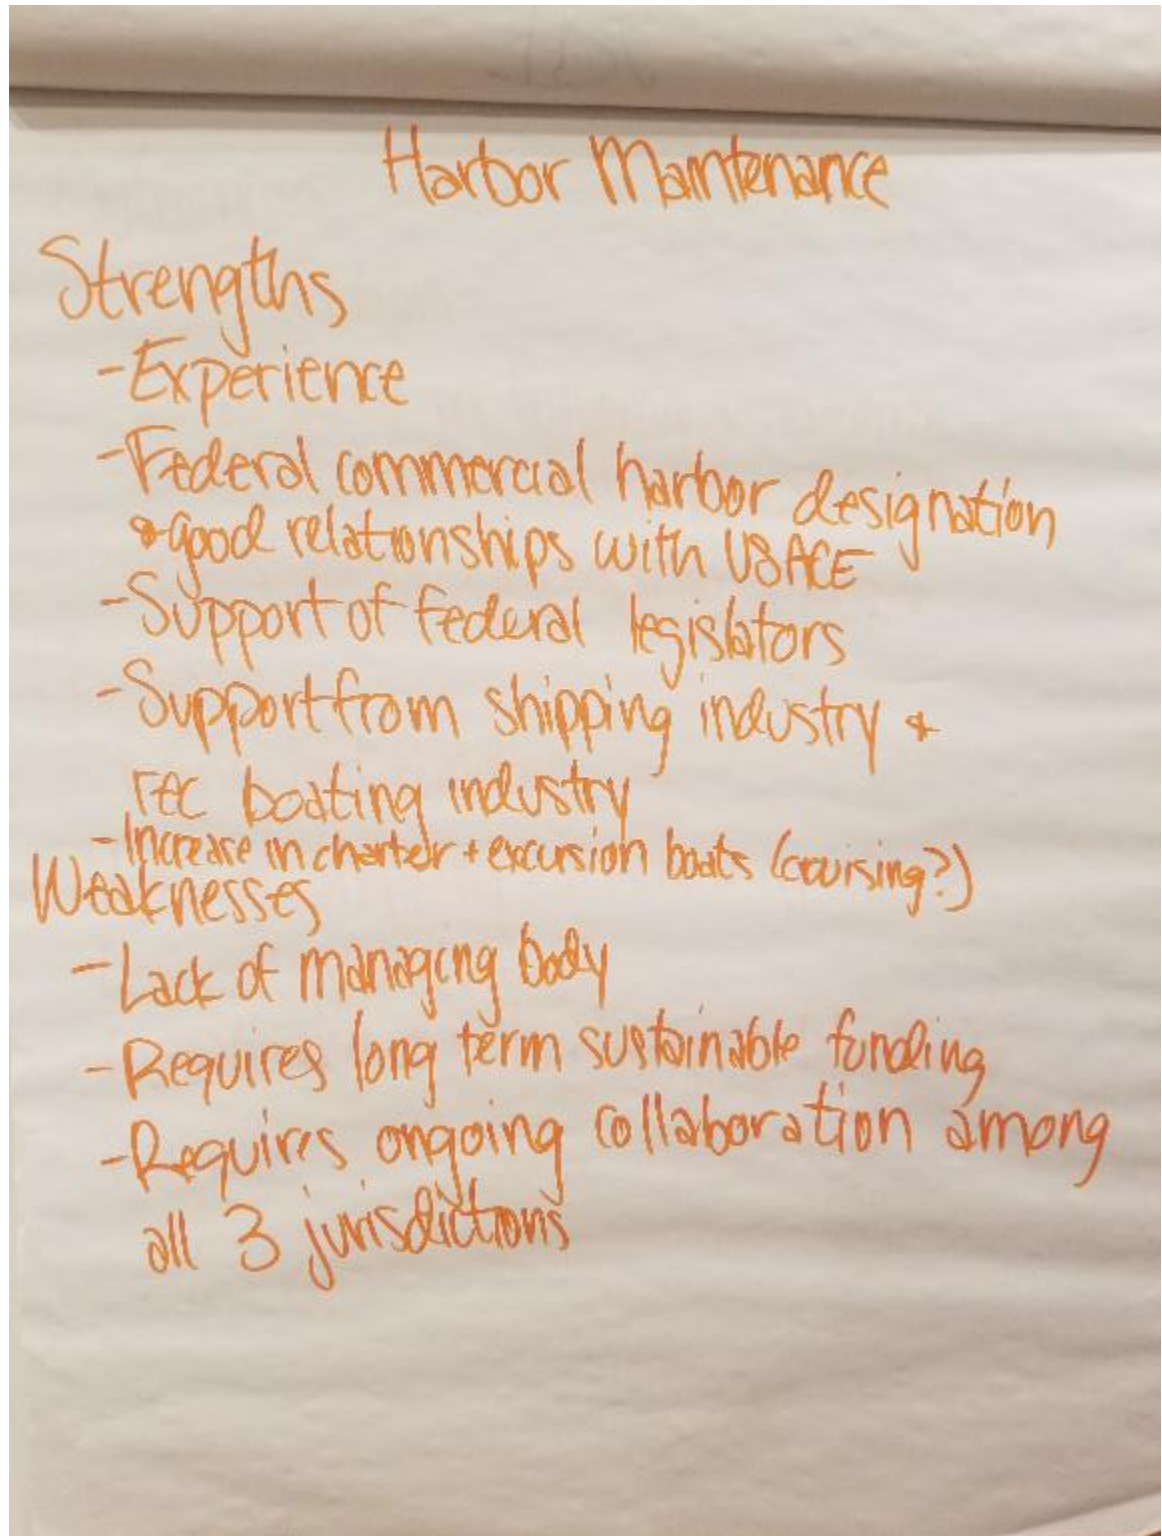 Harbor Maintenance
Strengths
- Experience
- Federal commercial harbor designation
& good relationships with USACE
- Support of federal legislators
- Support from shipping industry &
rec boating industry
- Increase in charter + excursion boats (cruising?)
Weaknesses
- Lack of managing body
- Requires long term sustainable funding
- Requires ongoing collaboration among
all 3 jurisdictions